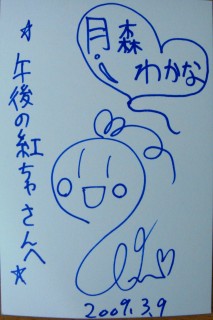 月森
わかな
☆午後の紅ちゃさんへ☆
2009.3.9